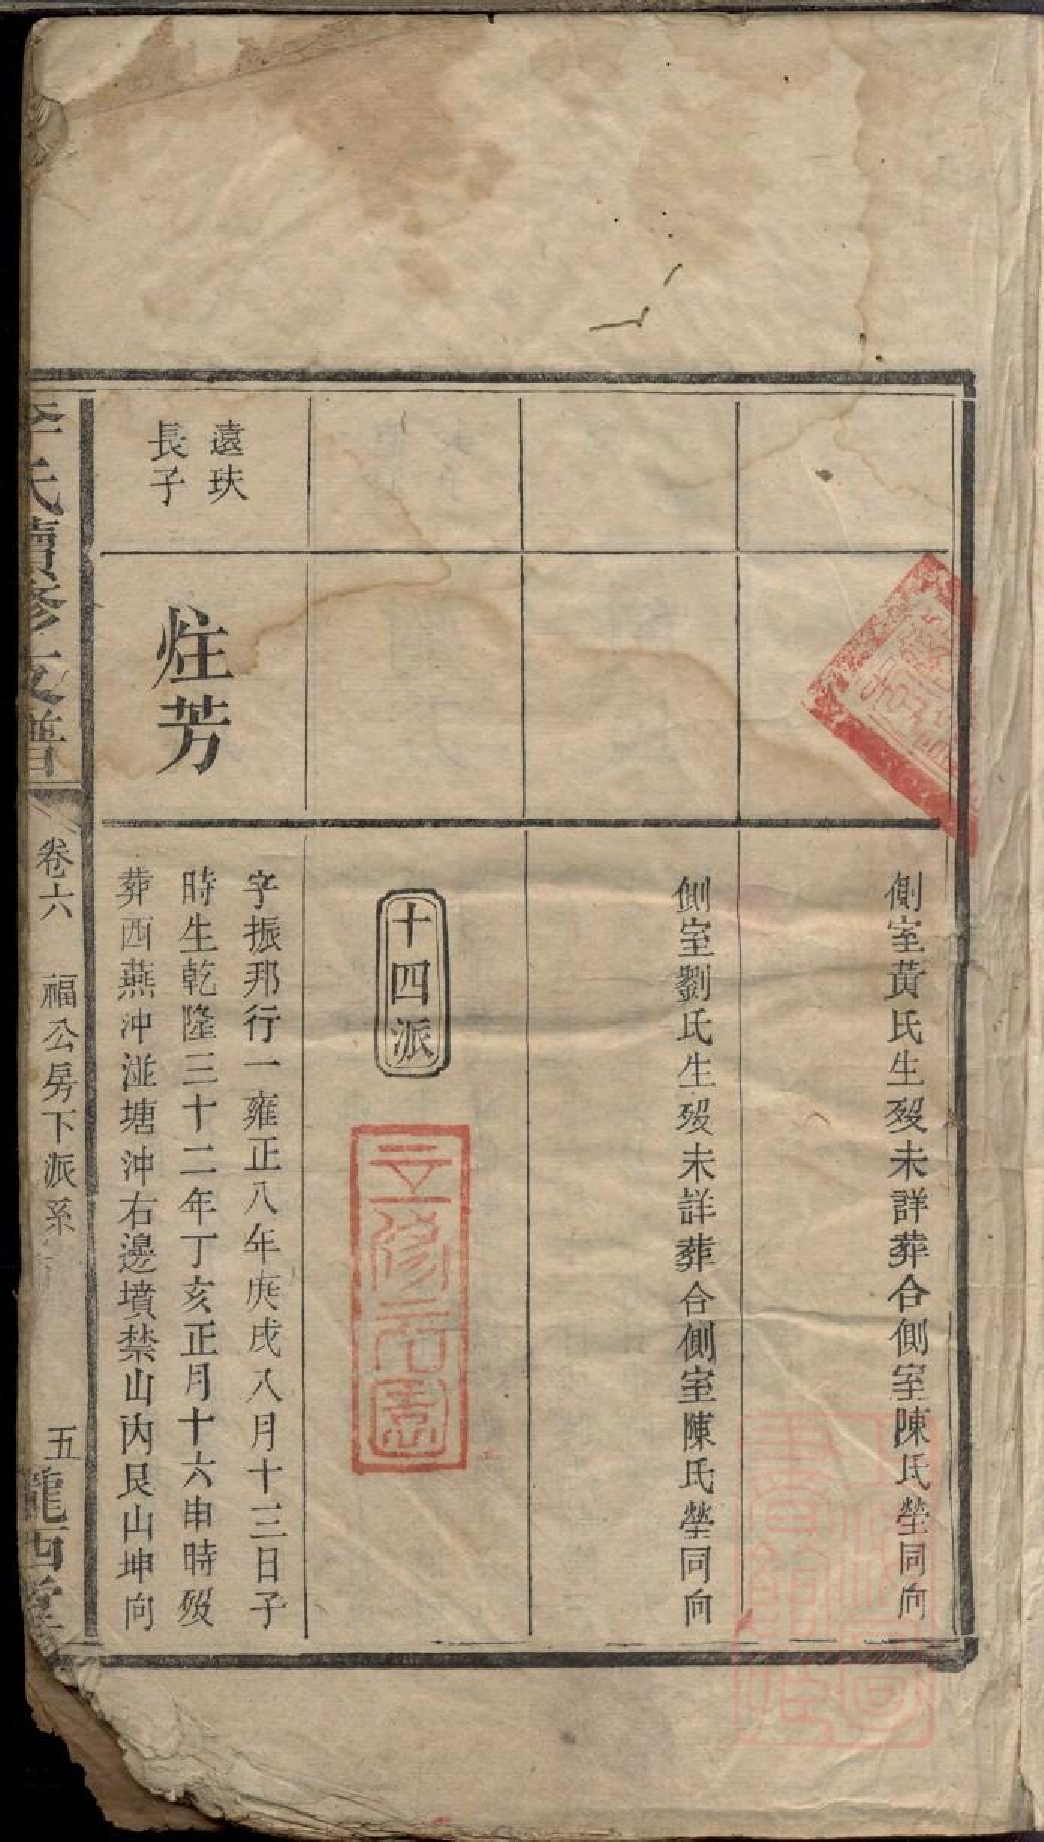 側室黃氏生歿未詳葬合側室陳氏塋同向
側室劉氏生歿未詳葬合側室陳氏塋同向
十四派
五修元圖
遠玞
長子
炷芳
字振邦行一雍正八年庚戌八月十三日子
時生乾隆三十二年丁亥正月十六申時歿
葬西燕沖泚塘沖右邊墳禁山內艮山坤向
李氏續修支譜
卷六 福公房下派系
五
隴西堂